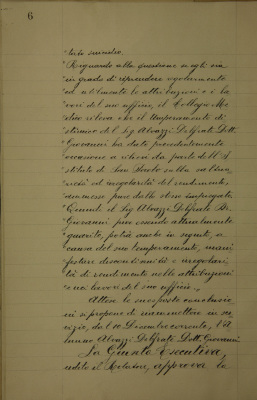 6
Riguardo alla questione se egli sia
in grado di riprendere regolarmente
ed utilmente le attribuzioni e i la-
vori del suo ufficio, il Collegio Me-
dico rileva che il temperamento di
del Sig. Aluazzi Delfrate Dott.
Giovanni ha dato precedentemente
occasione a rilievi da parte dell'I-
stituto di San Paolo sulla
ed irregolarità del rendimento,
ammesse pure dallo stesso impiegato.
Quindi il Sig. Aluazzi Delfrate Dr.
Giovanni pur essendo attualmente
guarito, potrà anche in seguito, a
causa del suo temperamento, mani-
festare discontinuità e irregolari-
tà di rendimento nelle attribuzioni
e nei lavori del suo ufficio.
Attese le suesposte conclusio-
ni si propone di riammettere in ser-
vizio, dal 10 Dicembre corrente, l'A-
lunno Aluazzi Delfrate Dott. Giovanni.
La Giunta Esecutiva,
udito il Relatore, approva la